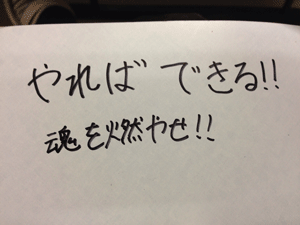 やればできる!!
魂を燃やせ!!